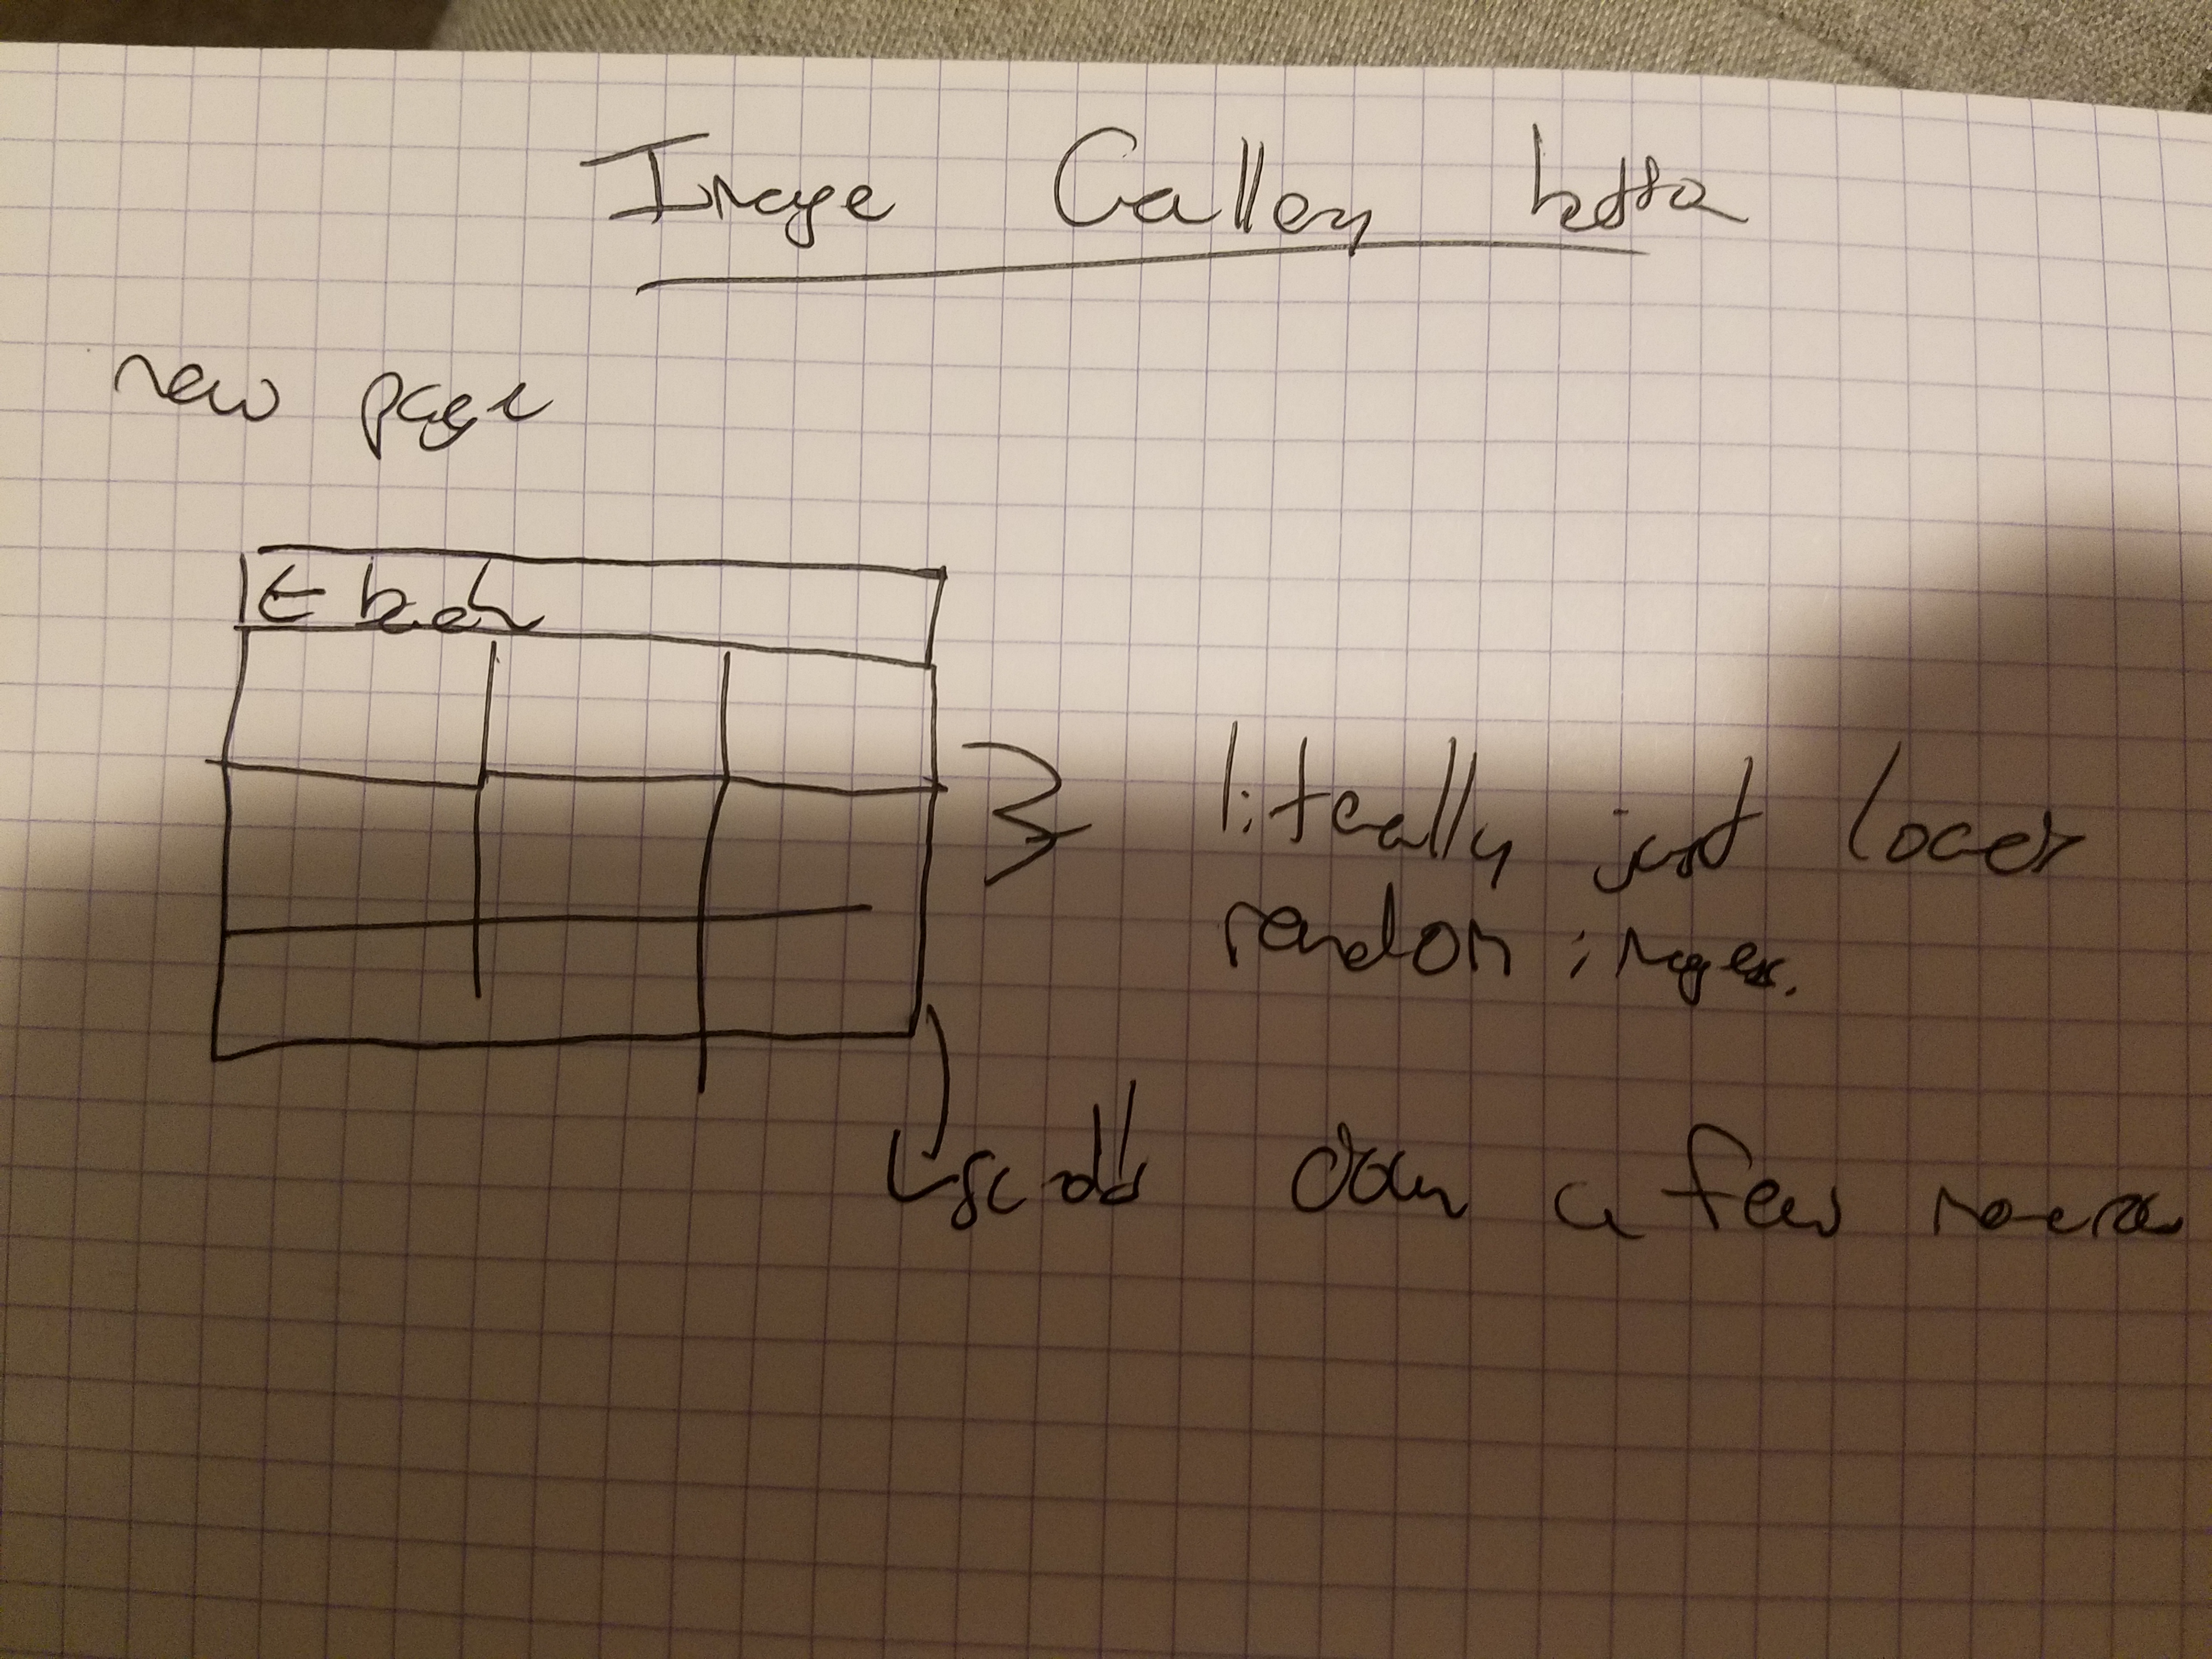 Image Gallery
new page
← back
literally just loads
random images.
scroll down a few more